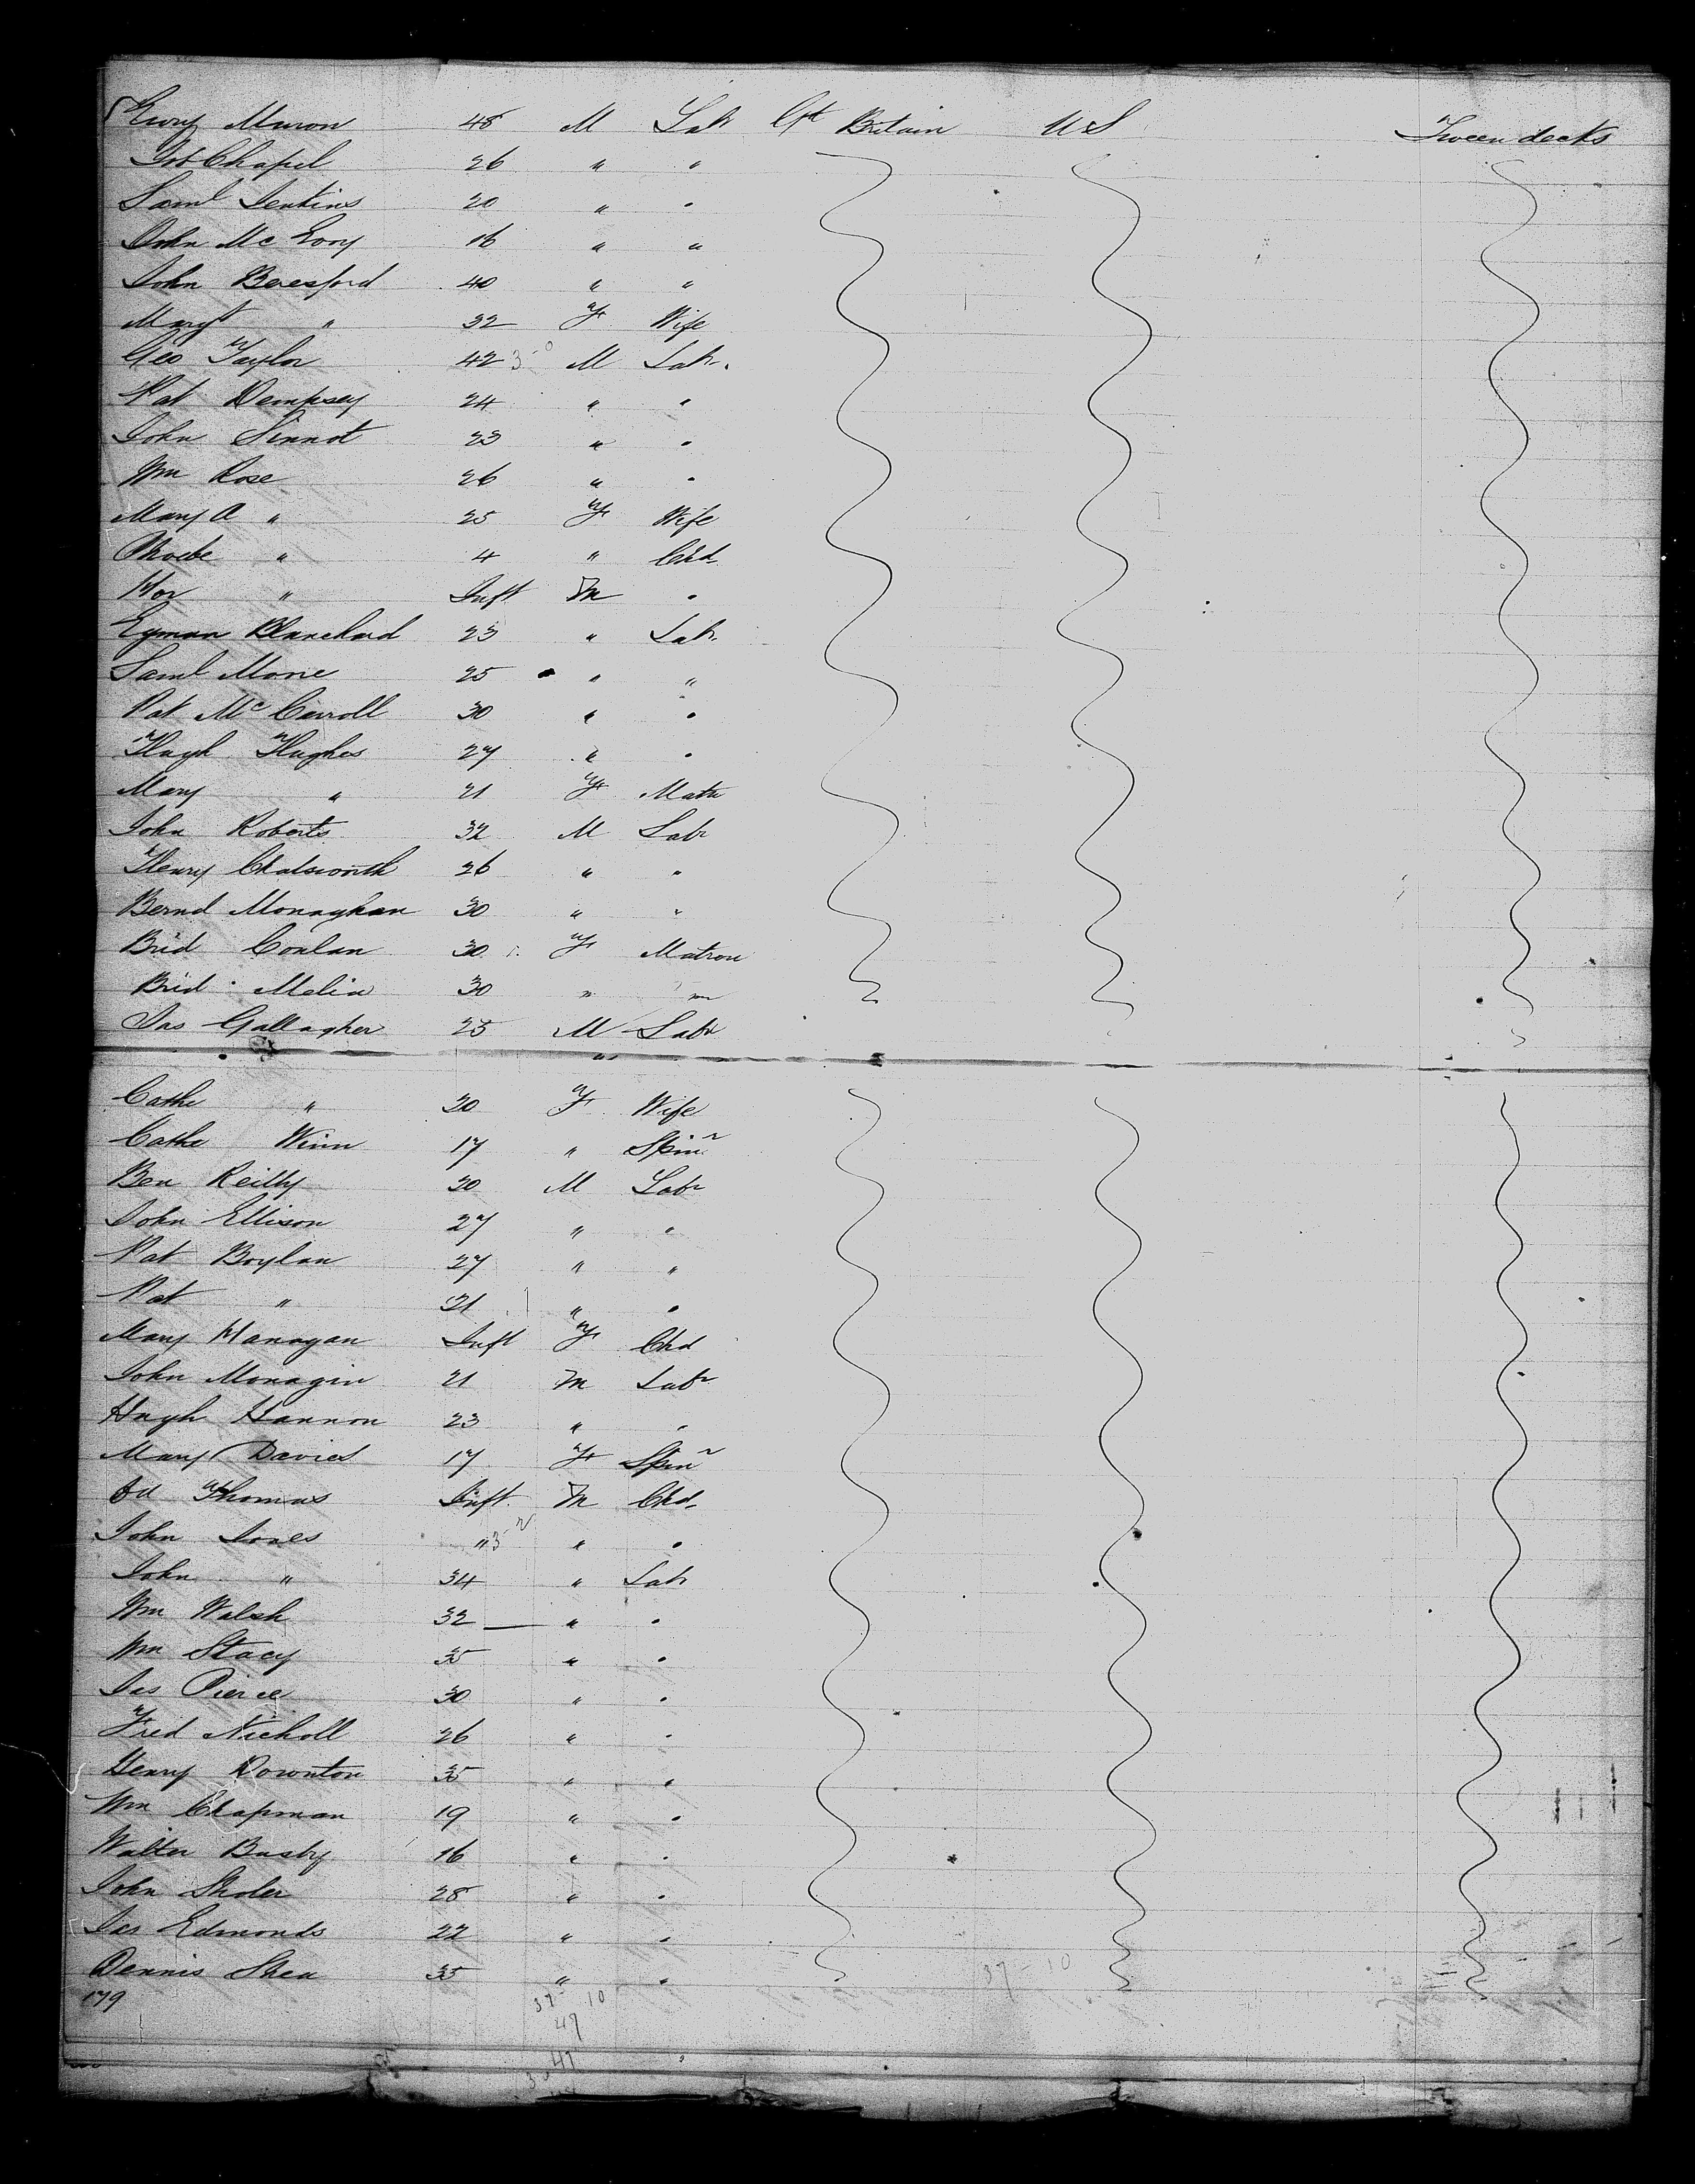 Muron 48 M Labr Gt Britain U S Tween decks
Job Chapel 26 " "
Saml Jenkins 20 " "
John Mc Evoy 16 " "
John Beresford 40 " "
Margt " 32 F Wife
Geo Taylor 42 3-0 M Labr
Pat Dempsey 24 " "
John Sinnot 23 " "
Wm Rose 26 " "
Mary A " 25 F Wife
Phoebe " 4 " Chd
" Inft M "
Eyman Blanchard 23 " Labr
Saml 25 " "
Pat Mc Carroll 30 " "
Hugh Hughes 27 " "
Mary " 21 F Matn
John Roberts 32 M Labr
Henry Chatsworth 26 " "
Bernd Monaghan 30 " "
Brid Conlan 30 F Matron
Brid Melia 30 " "
Jas Gallagher 25 M Labr
Cathe " 20 F Wife
Cathe Winn 17 " Spinr
Ben Reilly 20 M Labr
John Ellison 27 " "
Pat Boylan 27 " "
Pat " 21 " "
Mary Hanagan Inft F Chd
John Monagin 21 M Labr
Hugh Hannon 23 " "
Mary Davies 17 F Spinr
Ed Thomas Inft M Chd
John Jones " 3-2 " "
John " 34 " Labr
Wm Walsh 32 " "
Wm Stacy 35 " "
Jas Pierce 30 " "
Fred Nicholl 26 " "
Henry Downton 35 " "
Wm Chapman 19 " "
Walter Busby 16 " "
John Sholer 28 " "
Jas Edmonds 22 " "
Dennis Shea 35 " "
179 37-10 37-10
47
47